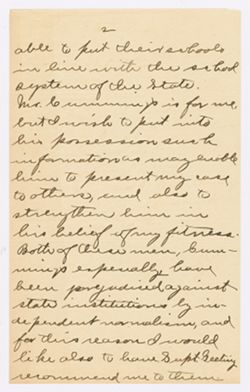 2
able to put their schools
in line with the school
system of the State.
Mr. Cummings is for me
but I wish to put into
his possession such
information as may enable
him to present my case
to others, and also to
strengthen him in
his belief of my fitness.
Both of these men, Cum-
mings especially, have
been prejudiced against
state institutions by in-
dependent normalism, and
for this reason I would
like also to have Supt. Feeling
recommend me to them